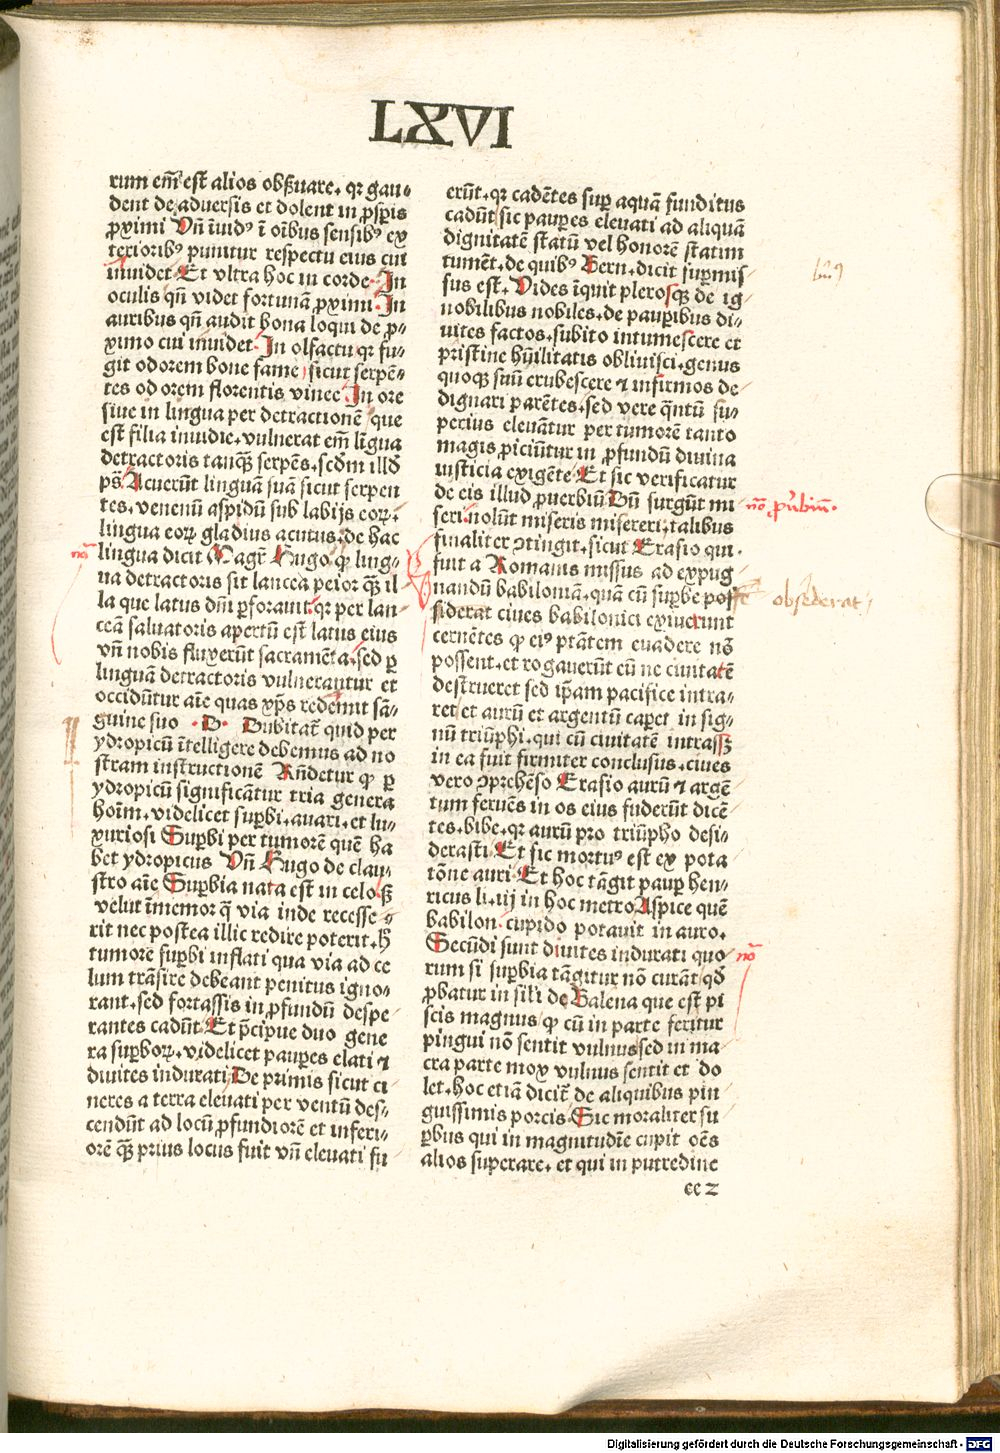 LXVI
rum em̄ est alios obſſuare. qꝛ gau⸗
dent de aduersis et dolent in ꝓsꝑis
ꝓximi Vn̄ ī̄uidꝰ ī oībus sensibꝰ ex
terioribꝰ punitur respectu eius cui
inuidet Et vltra hoc in corde. In
oculis qn̄ videt fortunā ꝓximi. In
auribus qn̄ audit bona loqui de ꝓ⸗
ximo cui inuidet. In olfactu qꝛ fu⸗
git odorem bone fame sicut serpē⸗
tes odorem florentis vinee In ore
siue in lingua per detractionē que
est filia inuidie. vulnerat em̄ lingua
detractoris tanqꝫ serpēs. scdm illd̄
ps̄ Acuerūt linguā suā sicut serpen
tes. venenū aspidū sub labijs eoꝝ.
lingua eoꝝ gladius acutus. de hac
lingua dicit Magr̄ Hugo ꝙ ling⸗
na detractoris sit lancea peior qꝫ il
la que latus dn̄i ꝑforauit. qꝛ per lan
ceā saluatoris apertū est latus eius
vn̄ nobis fluxerūt sacramēta. sed ꝑ
linguā detractoris vulnerantur et
occidūtur aīe quas xp̄s redemit sā⸗
guine suo . D . Dubitat̄ quid per
ydropicū ītelligere debemus ad no
stram instructionē Rn̄detur ꝙ ꝑ
ydropicū significātur tria genera
hoīm. videlicet suꝑbi. auari. et lu⸗
xuriosi Suꝑbi per tumorē quē ha
bet ydropicus Vn̄ Hugo de clau⸗
stro aīe Suꝑbia nata est in celo. sꝫ
velut īmemor q̄ via inde recesse⸗
rit nec postea illic redire poterit. h̄
tumore suꝑbi inflati qua via ad ce
lum trāsire debeant penitus igno⸗
rant. sed fortassis in ꝓfundū despe⸗
rantes cadūt. Et p̄cipue duo gene
ra suꝑboꝝ. videlicet pauꝑes elati ⁊
diuites indurati De primis sicut ci
neres a terra eleuati per ventū des⸗
cendūt ad locū ꝓfundiorē et inferi⸗
orē qꝫ prius locus fuit vn̄ eleuati fu
erūt. qꝛ cadētes suꝑ aquā funditus
cadūt sic pauꝑes eleuati ad aliquā
dignitatē statū vel honorē statim
tumēt. de quibꝰ Bern. dicit suꝑmis
sus est. Vides īquit plerosqꝫ de ig⸗
nobilibus nobiles. de pauꝑibus di⸗
uites factos. subito intumescere et
pristine hūilitatis obliuisci. genus
quoqꝫ suū erubescere ⁊ infirmos de
dignari parētes. sed vere qn̄tū su⸗
perius eleuātur per tumorē tanto
magis ꝓiciūtur in ꝓfundū diuina
iusticia exigēte Et sic verificatur
de eis illud ꝓuerbiū Dū surgūt mi
seri. nolūt miseris misereri. talibus
finaliter ꝯtingit. sicut Crasio qui
fuit a Romanis missus ad expug⸗
nandū babiloniā. quā cū suꝑbe pos
siderat ciues babilonici exiuerunt
cernētes ꝙ eiꝰ ptātem euadere nō
possent. et rogauerūt eū ne ciuitatē
destrueret sed ip̄am pacifice intra⸗
ret et aurū et argentū caꝑet in sig⸗
nū triūphi. qui cū ciuitatē intrassꝫ
in ea fuit firmiter conclusus. ciues
vero ꝯprehēso Crasio aurū ⁊ argē
tum feruēs in os eius fuderūt dicē
tes. bibe. qꝛ aurū pro triūpho desi⸗
derasti. Et sic mortuꝰ est ex pota
tōne auri. Et hoc tāgit pauꝑ hen⸗
ricus li. iij in hoc metro Aspice quē
babilon cupido potauit in auro.
Secūdi sunt diuites indurati quo
rum si suꝑbia tāgitur nō curāt. qd̄
ꝓbatur in sili de Balena que est pi
scis magnus ꝙ cū in parte feritur
pingui nō sentit vulnus sed in ma
cra parte mox vulnus sentit et do
let. hoc etiā dicit̄ de aliquibus pin
guissimis porcis. Sic moraliter su
ꝑbus qui in magnitudīe cupit oēs
alios superare. et qui in putredine
ee 2
nō ꝓubiū.
obsederat
nō
nō
Digitalisierung gefördert durch die Deutsche Forschungsgemeinschaft - DFG